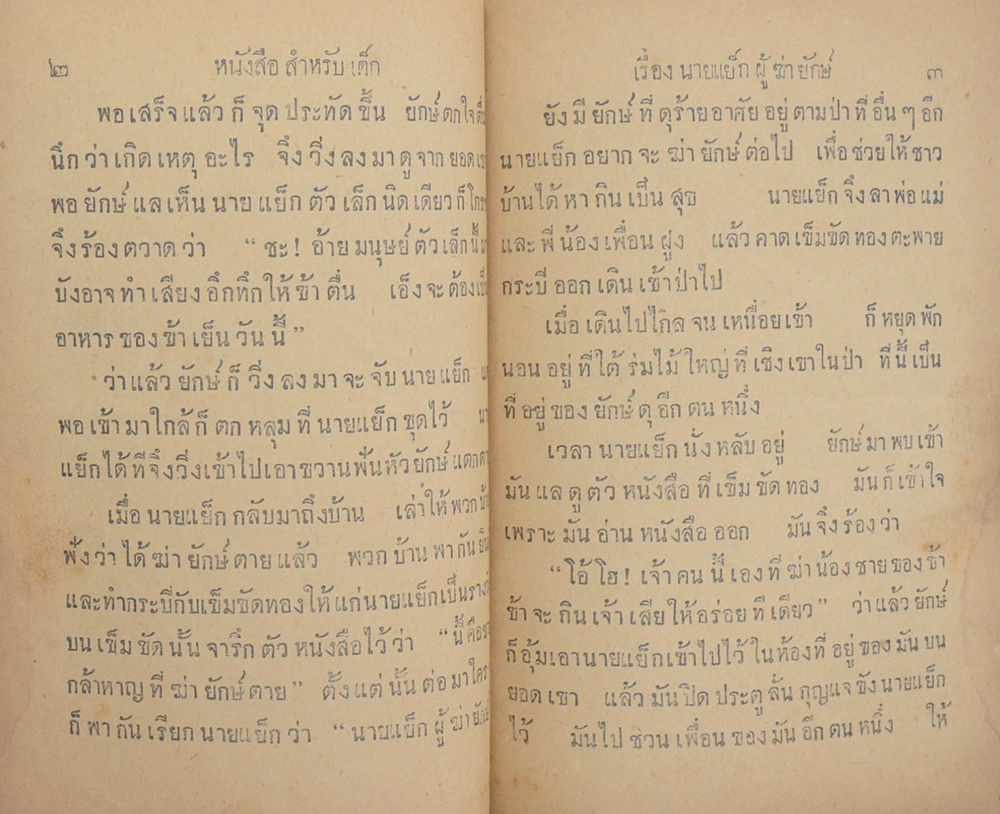 ๒ หนังสือ สำหรับ เด็ก
พอ เสร็จ แล้ว ก็ จุด ประทัด ขึ้น ยักษ์ ตก ใจ
นึก ว่า เกิด เหตุ อะไร จึ่ง วิ่ง ลง มา ดู จาก ยอด
พอ ยักษ์ แล เห็น นาย แย็ก ตัว เล็ก นิด เดียว ก็
จึ่ง ร้อง ตวาด ว่า “ ชะ ! อ้าย มนุษย์ ตัว เล็ก นี้
บังอาจ ทำ เสียง อึกทึก ให้ ข้า ตื่น เอ็ง จะ ต้อง
อาหาร ของ ข้า เย็น วัน นี้ ”
ว่า แล้ว ยักษ์ ก็ วิ่ง ลง มา จะ จับ นาย แย็ก
พอ เข้า มา ใกล้ ก็ ตก หลุม ที่ นาย แย็ก ขุด ไว้
แย็ก ได้ ที จึง วิ่ง เข้า ไป เอา ขวาน ฟัน หัว ยักษ์ แตก
เมื่อ นาย แย็ก กลับ มา ถึง บ้าน เล่า ให้ พวก
ฟัง ว่า ได้ ฆ่า ยักษ์ ตาย แล้ว พวก บ้าน พา กัน
และ ทำ กระบี่ กับ เข็มขัด ทอง ให้ แก่ นาย แย็ก เป็น
บน เข็ม ขัด นั้น จารึก ตัว หนังสือ ไว้ ว่า “ นี้ คือ
กล้าหาญ ที่ ฆ่า ยักษ์ ตาย ” ตั้ง แต่ นั้น ต่อ มา ใคร
ก็ พา กัน เรียก นาย แย็ก ว่า “ นาย แย็ก ผู้ ฆ่า
เรื่อง นายแย็ก ผู้ ฆ่า ยักษ์ ๓
ยัง มี ยักษ์ ที่ ดุร้าย อาศัย อยู่ ตาม ป่า ที่ อื่น ๆ อีก
นาย แย็ก อยาก จะ ฆ่า ยักษ์ ต่อ ไป เพื่อ ช่วย ให้ ชาว
บ้าน ได้ หา กิน เป็น สุข นาย แย็ก จึง ลา พ่อ แม่
และ พี่ น้อง เพื่อน ฝูง แล้ว คาด เข็มขัด ทอง ตะพาย
กระบี่ ออก เดิน เข้า ป่า ไป
เมื่อ เดิน ไป ไกล จน เหนื่อย เข้า ก็ หยุด พัก
นอน อยู่ ที่ ใต้ ร่ม ไม้ ใหญ่ ที่ เชิง เขา ใน ป่า ที่ นี้ เป็น
ที่ อยู่ ของ ยักษ์ ดุ อีก ตน หนึ่ง
เวลา นาย แย็ก นั่ง หลับ อยู่ ยักษ์ มา พบ เข้า
มัน แล ดู ตัว หนังสือ ที่ เข็ม ขัด ทอง มัน ก็ เข้า ใจ
เพราะ มัน อ่าน หนังสือ ออก มัน จึง ร้อง ว่า
“ โอ้ โฮ ! เจ้า คน นี้ เอง ที่ ฆ่า น้อง ชาย ของ ข้า
ข้า จะ กิน เจ้า เสีย ให้ อร่อย ที เดียว ” ว่า แล้ว ยักษ์
ก็ อุ้ม เอา นาย แย็ก เข้า ไป ไว้ ใน ห้อง ที่ อยู่ ของ มัน บน
ยอด เขา แล้ว มัน ปิด ประตู ลั่น กุญแจ ขัง นาย แย็ก
ไว้ มัน ไป ชวน เพื่อน ของ มัน อีก ตน หนึ่ง ให้